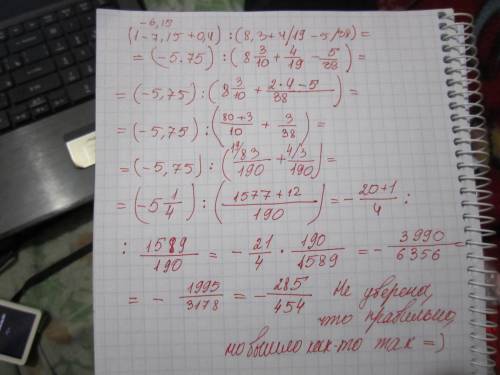 -6,15
(1-7,15+0,4) : (8,3+4/19-5/38) =
= (-5.75) : (8 3/10 + 4/19 - 5/38) =
= (-5,75) : (8 3/10 + 2·4-5/38) =
= (-5,75) : (80+3/10 + 3/38) =
= (-5,75) : (19/83/190 + 4/3/190) =
= (-5 1/4) : (1577+12/190) = - 20+1/4 :
: 1589/190 = - 21/4 · 190/1589 = - 3990/6356 =
= - 1995/3178 = - 285/454 Не уверена,
что правильно,
но вышло как-то так =)